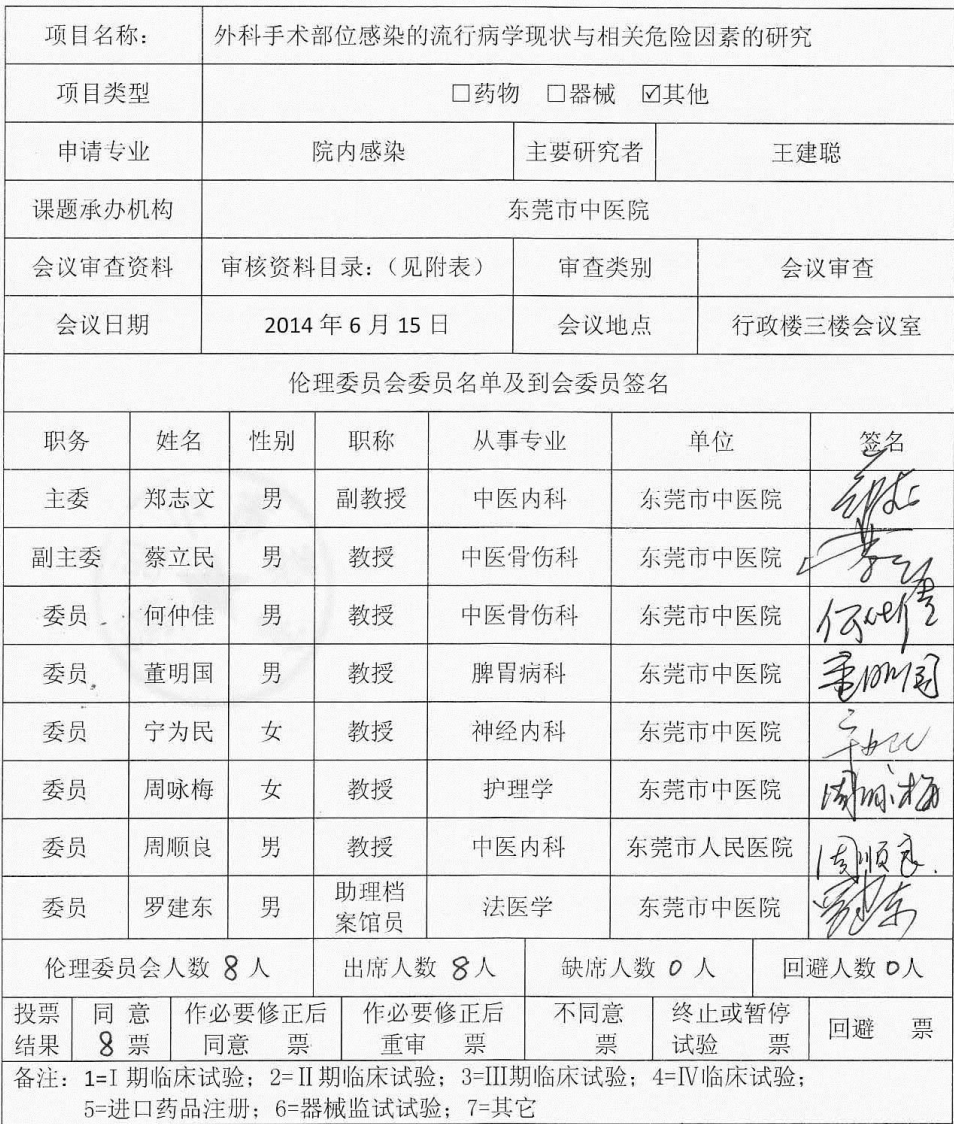 项目名称： 外科手术部位感染的流行病学现状与相关危险因素的研究
项目类型 □药物 □器械 ☑其他
申请专业 院内感染 主要研究者 王建聪
课题承办机构 东莞市中医院
会议审查资料 审核资料目录：（见附表） 审查类别 会议审查
会议日期 2014 年 6 月 15 日 会议地点 行政楼三楼会议室
伦理委员会委员名单及到会委员签名
职务 姓名 性别 职称 从事专业 单位 签名
主委 郑志文 男 副教授 中医内科 东莞市中医院
副主委 蔡立民 男 教授 中医骨伤科 东莞市中医院
委员 何仲佳 男 教授 中医骨伤科 东莞市中医院
委员 董明国 男 教授 脾胃病科 东莞市中医院 董明国
委员 宁为民 女 教授 神经内科 东莞市中医院
委员 周咏梅 女 教授 护理学 东莞市中医院 周咏梅
委员 周顺良 男 教授 中医内科 东莞市人民医院 周顺良
委员 罗建东 男 助理档案馆员 法医学 东莞市中医院
伦理委员会人数 8 人 出席人数 8 人 缺席人数 0 人 回避人数 0人
投票结果 同 意 8 票 作必要修正后同意 票 作必要修正后重审 票 不同意 票 终止或暂停试验 票 回避 票
备注：1=I 期临床试验；2=Ⅱ期临床试验；3=Ⅲ期临床试验；4=Ⅳ临床试验；
5=进口药品注册；6=器械监试试验；7=其它